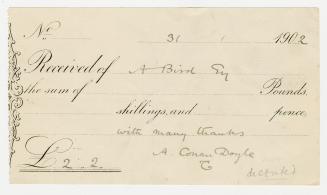 No 31 1902
Received of A Bird Esq
the sum of Pounds
shillings, and pence
with many thanks
£ 2 - 2. A. Conan Doyle